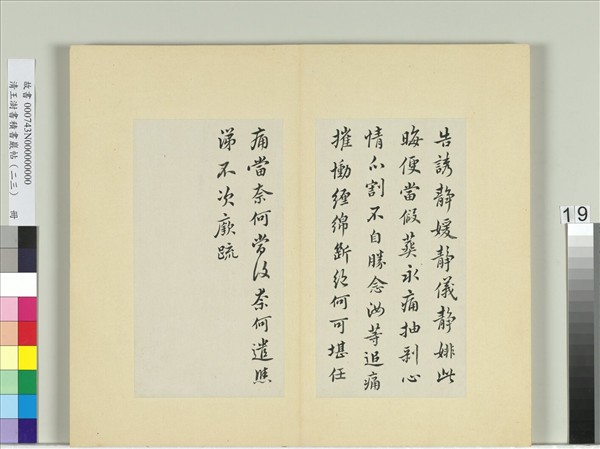 告誘靜媛靜儀靜姚此
晦便當假葬永痛抽剥心
情分割不自勝念汝等追痛
摧慟纏綿斷絕何可堪任
痛當奈何當復奈何遣照
涕不次厥疏
故書 000743N000000000
清王澍書積書巖帖（二三） 冊
19